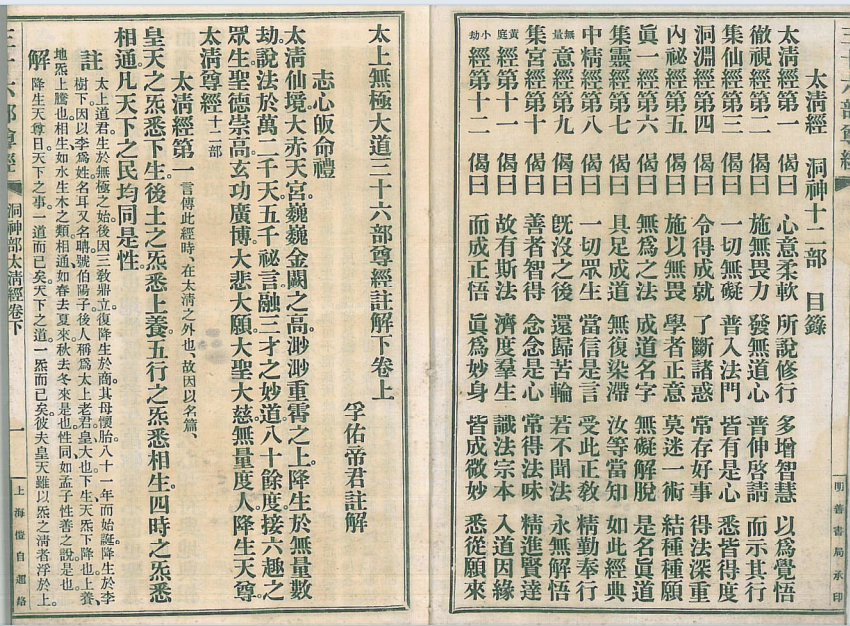 三十六部尊經
明善書局承印
太清經　洞神十二部　目錄
太清經第一　偈曰　心意柔軟　所說修行　多增智慧　以為覺悟
徹視經第二　偈曰　施無畏力　發無道心　普伸啓請　而示其行
集仙經第三　偈曰　一切無礙　普入法門　皆有是心　悉皆得度
洞淵經第四　偈曰　令得成就　了斷諸惑　常存好事　得法深重
內祕經第五　偈曰　施以無畏　學者正意　莫迷一術　結種種願
眞一經第六　偈曰　無為之法　成道名字　無礙解脫　是名眞道
集靈經第七　偈曰　具足成道　無復染滯　汝等當知　如此經典
中精經第八　偈曰　一切眾生　當信是言　受此正敎　精勤奉行
無量意經第九　偈曰　旣沒之後　還歸苦輪　若不聞法　永無解悟
集宮經第十　偈曰　善者智得　念念是心　常得法味　精進賢達
黃庭經第十一　偈曰　故有斯法　濟度羣生　識法宗本　入道因緣
小劫經第十二　偈曰　而成正悟　眞為妙身　皆成微妙　悉從願來
太上無極大道三十六部尊經註解下卷上
孚佑帝君註解
志心皈命禮
太清仙境大赤天宮。巍巍金闕之高。渺渺重霄之上。降生於無量數
劫。說法於萬二千天。五千祕言。融三才之妙道。八十餘度。接六趣之
眾生。聖德崇高。玄功廣博。大悲大願。大聖大慈。無量度人。降生天尊
太清尊經十二部
太清經第一言傳此經時、在太清之外也、故因以名篇、
皇天之炁悉下生。後土之炁悉上養。五行之炁悉相生。四時之炁悉
相通。凡天下之民。均同是性。
註太上道君生於無極之始。後因三敎鼎立。復降生於商。其母懷胎八十一年而始誕。降生於李
樹下。因以李為姓。名耳。又名聃。號伯陽子。後人稱為太上老君。皇大也。下生天炁下降也。上養、
地炁上騰也。相生如水生木之類。相通如春去夏來。秋去冬來是也。性同如孟子性善之說是也。
解降生天尊曰。天下之事。一道而已矣。天下之道。一炁而已矣。彼夫皇天雖以炁之清者浮於上。
三十六部尊經
洞神部太清經卷下
一
上海愷自題絡